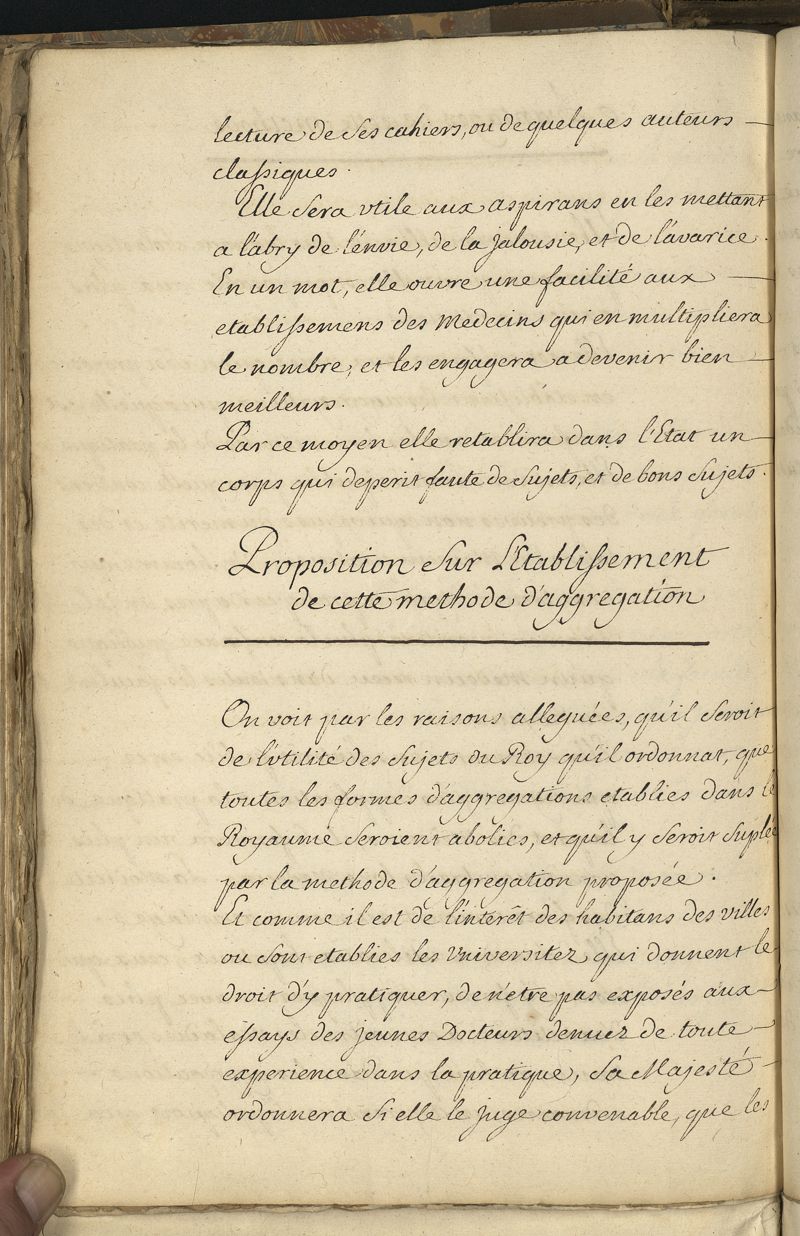 lecture de ses cahiers, ou de quelques auteurs
classiques.
Elle sera utile aux aspirans en les mettant
a l'abry de l'envie, de la jalousie, et de l'avarice.
En un mot, elle ouvre une facilité aux
etablissemens des Medecins qui en multipliera
le nombre, et les engagera a devenir bien
meilleurs.
Par ce moyen elle retablira dans l'Etat un
corps qui deperit faute de sujets, et de bons sujets.
Proposition sur L'Etablissement
de cette methode d'aggregation
On voit par les raisons alleguées, qu'il seroit
de l'utilité des sujets du Roy qu'il ordonnat, que
toutes les formes d'aggregations etablies dans le
Royaume seroient abolies, et qu'il y seroit suplée
par la methode d'aggregation proposée.
Et comme il est de l'interêt des habitans des villes
ou sont etablies les Universitez qui donnent le
droit d'y pratiquer, de n'etre pas exposés aux
essays des jeunes Docteurs denuez de toute
experience dans la pratique, sa Majesté
ordonnera si elle le juge convenable, que les